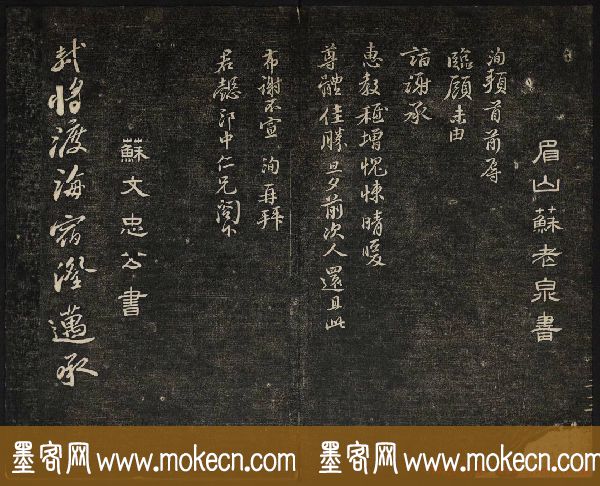 眉山蘇老泉書
洵頓首前辱
臨顧未由
詣謝承
惠教極增愧悚晴暖
尊體佳勝旦夕前次人還且此
布謝不宣 洵再拜
君懿郎中仁兄閣下
蘇文忠公書
軾將渡海宿澄邁承
墨客网 www.mokecn.com
墨客网 www.mokecn.com